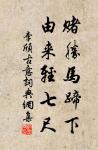 赌胜马蹄下
由来轻七尺
李颀古意词典网集